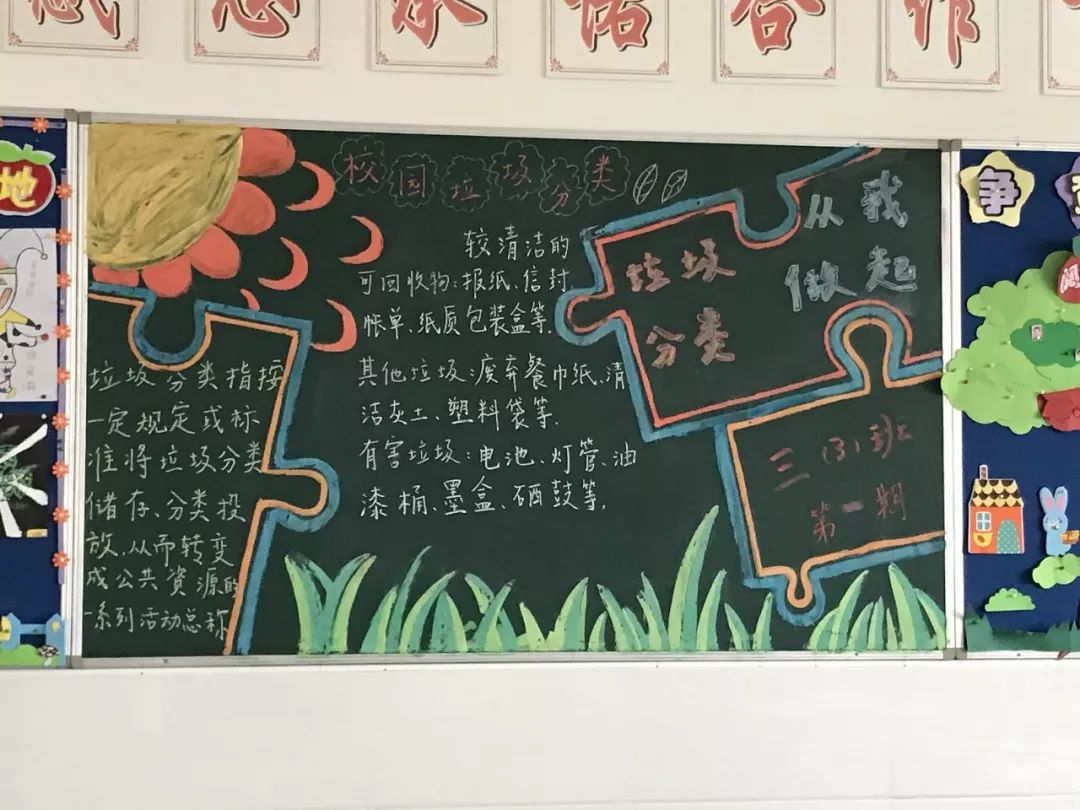 感恩承诺合作
地
校园垃圾分类
垃圾分类指按
一定规定或标
准将垃圾分类
储存、分类投
放,从而转变
成公共資源的
一系列活动总称
较清洁的
可回收物:报纸、信封、
帐单、纸质包装盒等.
其他垃圾:废弃餐巾纸、清
洁灰土、塑料袋等.
有害垃圾:电池、灯管、油
漆桶、墨盒、硒鼓等,
垃圾
分类
从我
做起
三(3)班
第一期
争